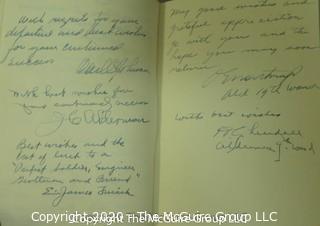 With regrets for your
departure and best wishes
for your continued
success
With best wishes for
your continued success
Best wishes and the
best of luck to a
"Perfect Soldier, Engineer
Gentleman and Friend"
E. James
May good wishes and
grateful appreciation
go with you and the
hope you may soon
return
Ald 19th Ward
With best wishes
Alderman 7th Ward
Copyright 2020 - The McGuire Group LLC